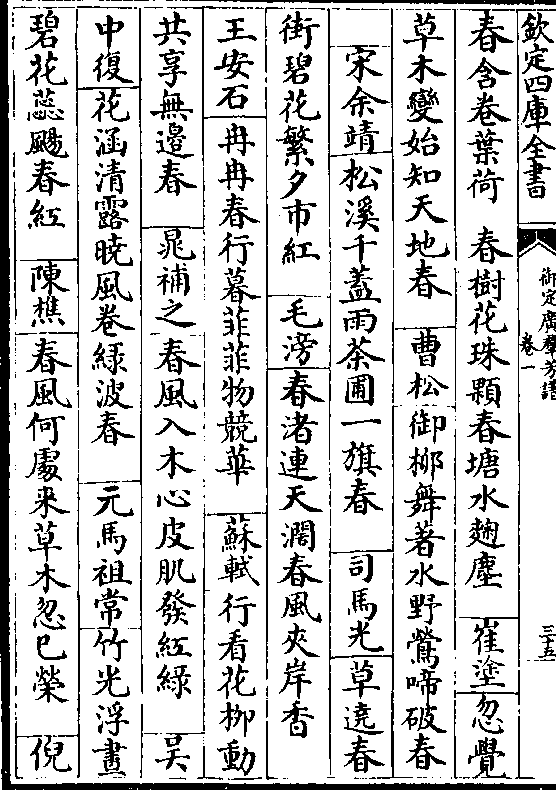 欽定四庫全書
御定廣羣芳譜
卷一
三十五
春含卷葉荷　春樹花珠顆春塘水麴塵　崔塗忽覺
草木變始知天地春　曹松御栁舞著水野鶯啼破春
宋余靖松溪千葢雨茶圃一旗春　司馬光草遶春
街碧花繁夕市紅　毛滂春渚連天濶春風夾岸香
王安石冉冉春行暮菲菲物競華　蘇軾行看花栁動
共享無邉春　晁補之春風入木心皮肌發紅綠　吳
中復花涵清露曉風卷綠波春　元馬祖常竹光浮晝
碧花蕊颺春紅　陳樵春風何處来草木忽已榮　倪